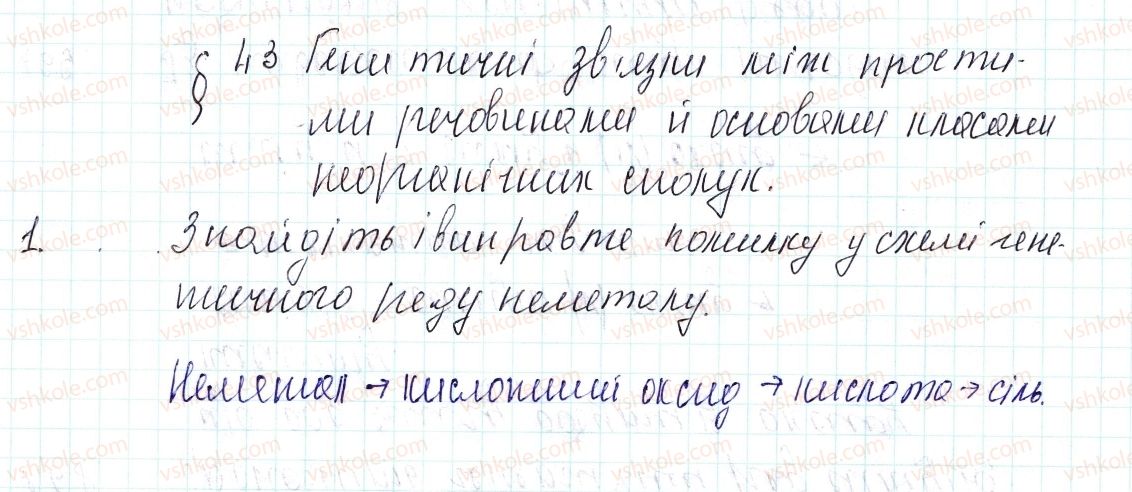 § 43 Генитичні звязки між прости-
ми речовинами й основами класами
неорганічних сполук.
1. Знайдіть і виправте помилку у схемі гене-
тичного ряду неметалу.
Неметал → кислотний оксид → кислота → сіль.